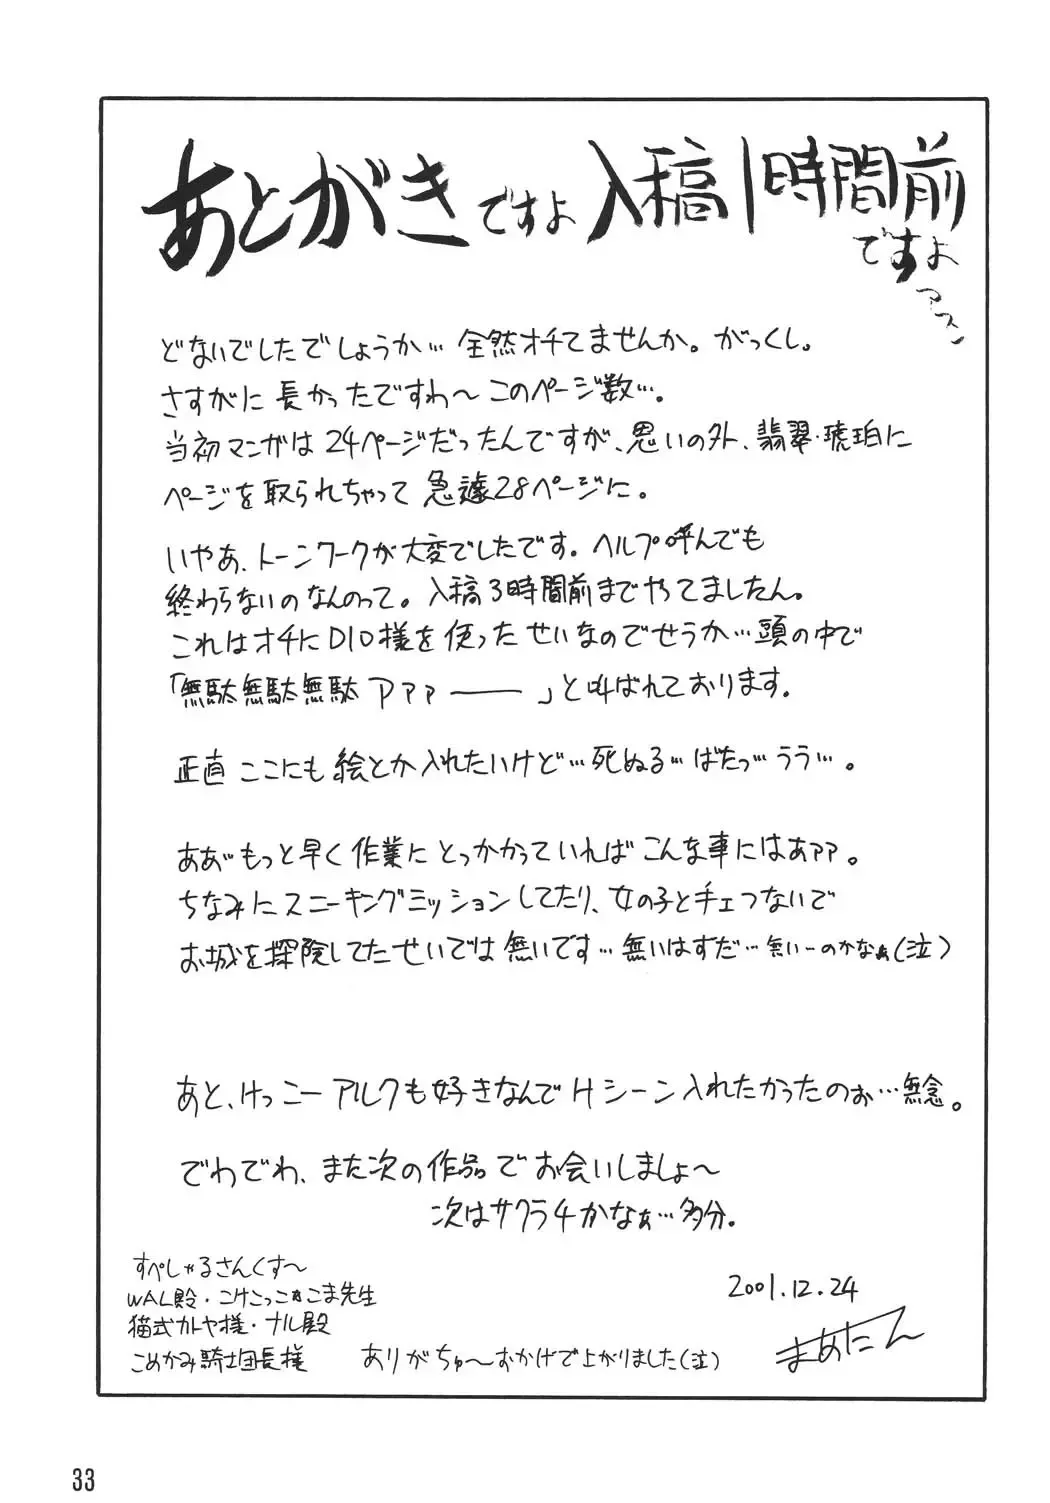 あとがきですよ 入稿1時間前
ですよ
アスン
どないでしたでしょうか… 全然オチてませんか。がっくし。
さすがに長かったですわ〜 このページ数…。
当初マンガは24ページだったんですが、思いの外、翡翠・琥珀に
ページを取られちゃって 急遽28ページに。
いやあ、トーンワークが大変でしたです。ヘルプ呼んでも
終わらないのなんのって。入稿3時間前までやってましたん。
これはオチにDIO様を使ったせいなのでせうか…頭の中で
「無駄無駄無駄アァァ――」と叫ばれております。
正直 ここにも絵とか入れたいけど…死ぬる…ばたっ…うう…。
ああ゛もっと早く作業にとっかかっていればこんな事にはあァァ。
ちなみにスニーキングミッションしてたり、女の子とチェつないで
お城を探険してたせいでは無いです…無いはずだ…無いーのかなぁ(泣)
あと、けっこーアルクも好きなんでHシーン入れたかったのぉ…無念。
でわでわ、また次の作品でお会いしましょ〜
次はサクラ4かなぁ…多分。
すぺしゃるさんくす〜
WAL殿・こけこっこぉこま先生
猫式カトヤ様・ナル殿
こめかみ騎士団長様 ありがちゅ〜おかげで上がりました(泣)
2001.12.24
まあたん
33